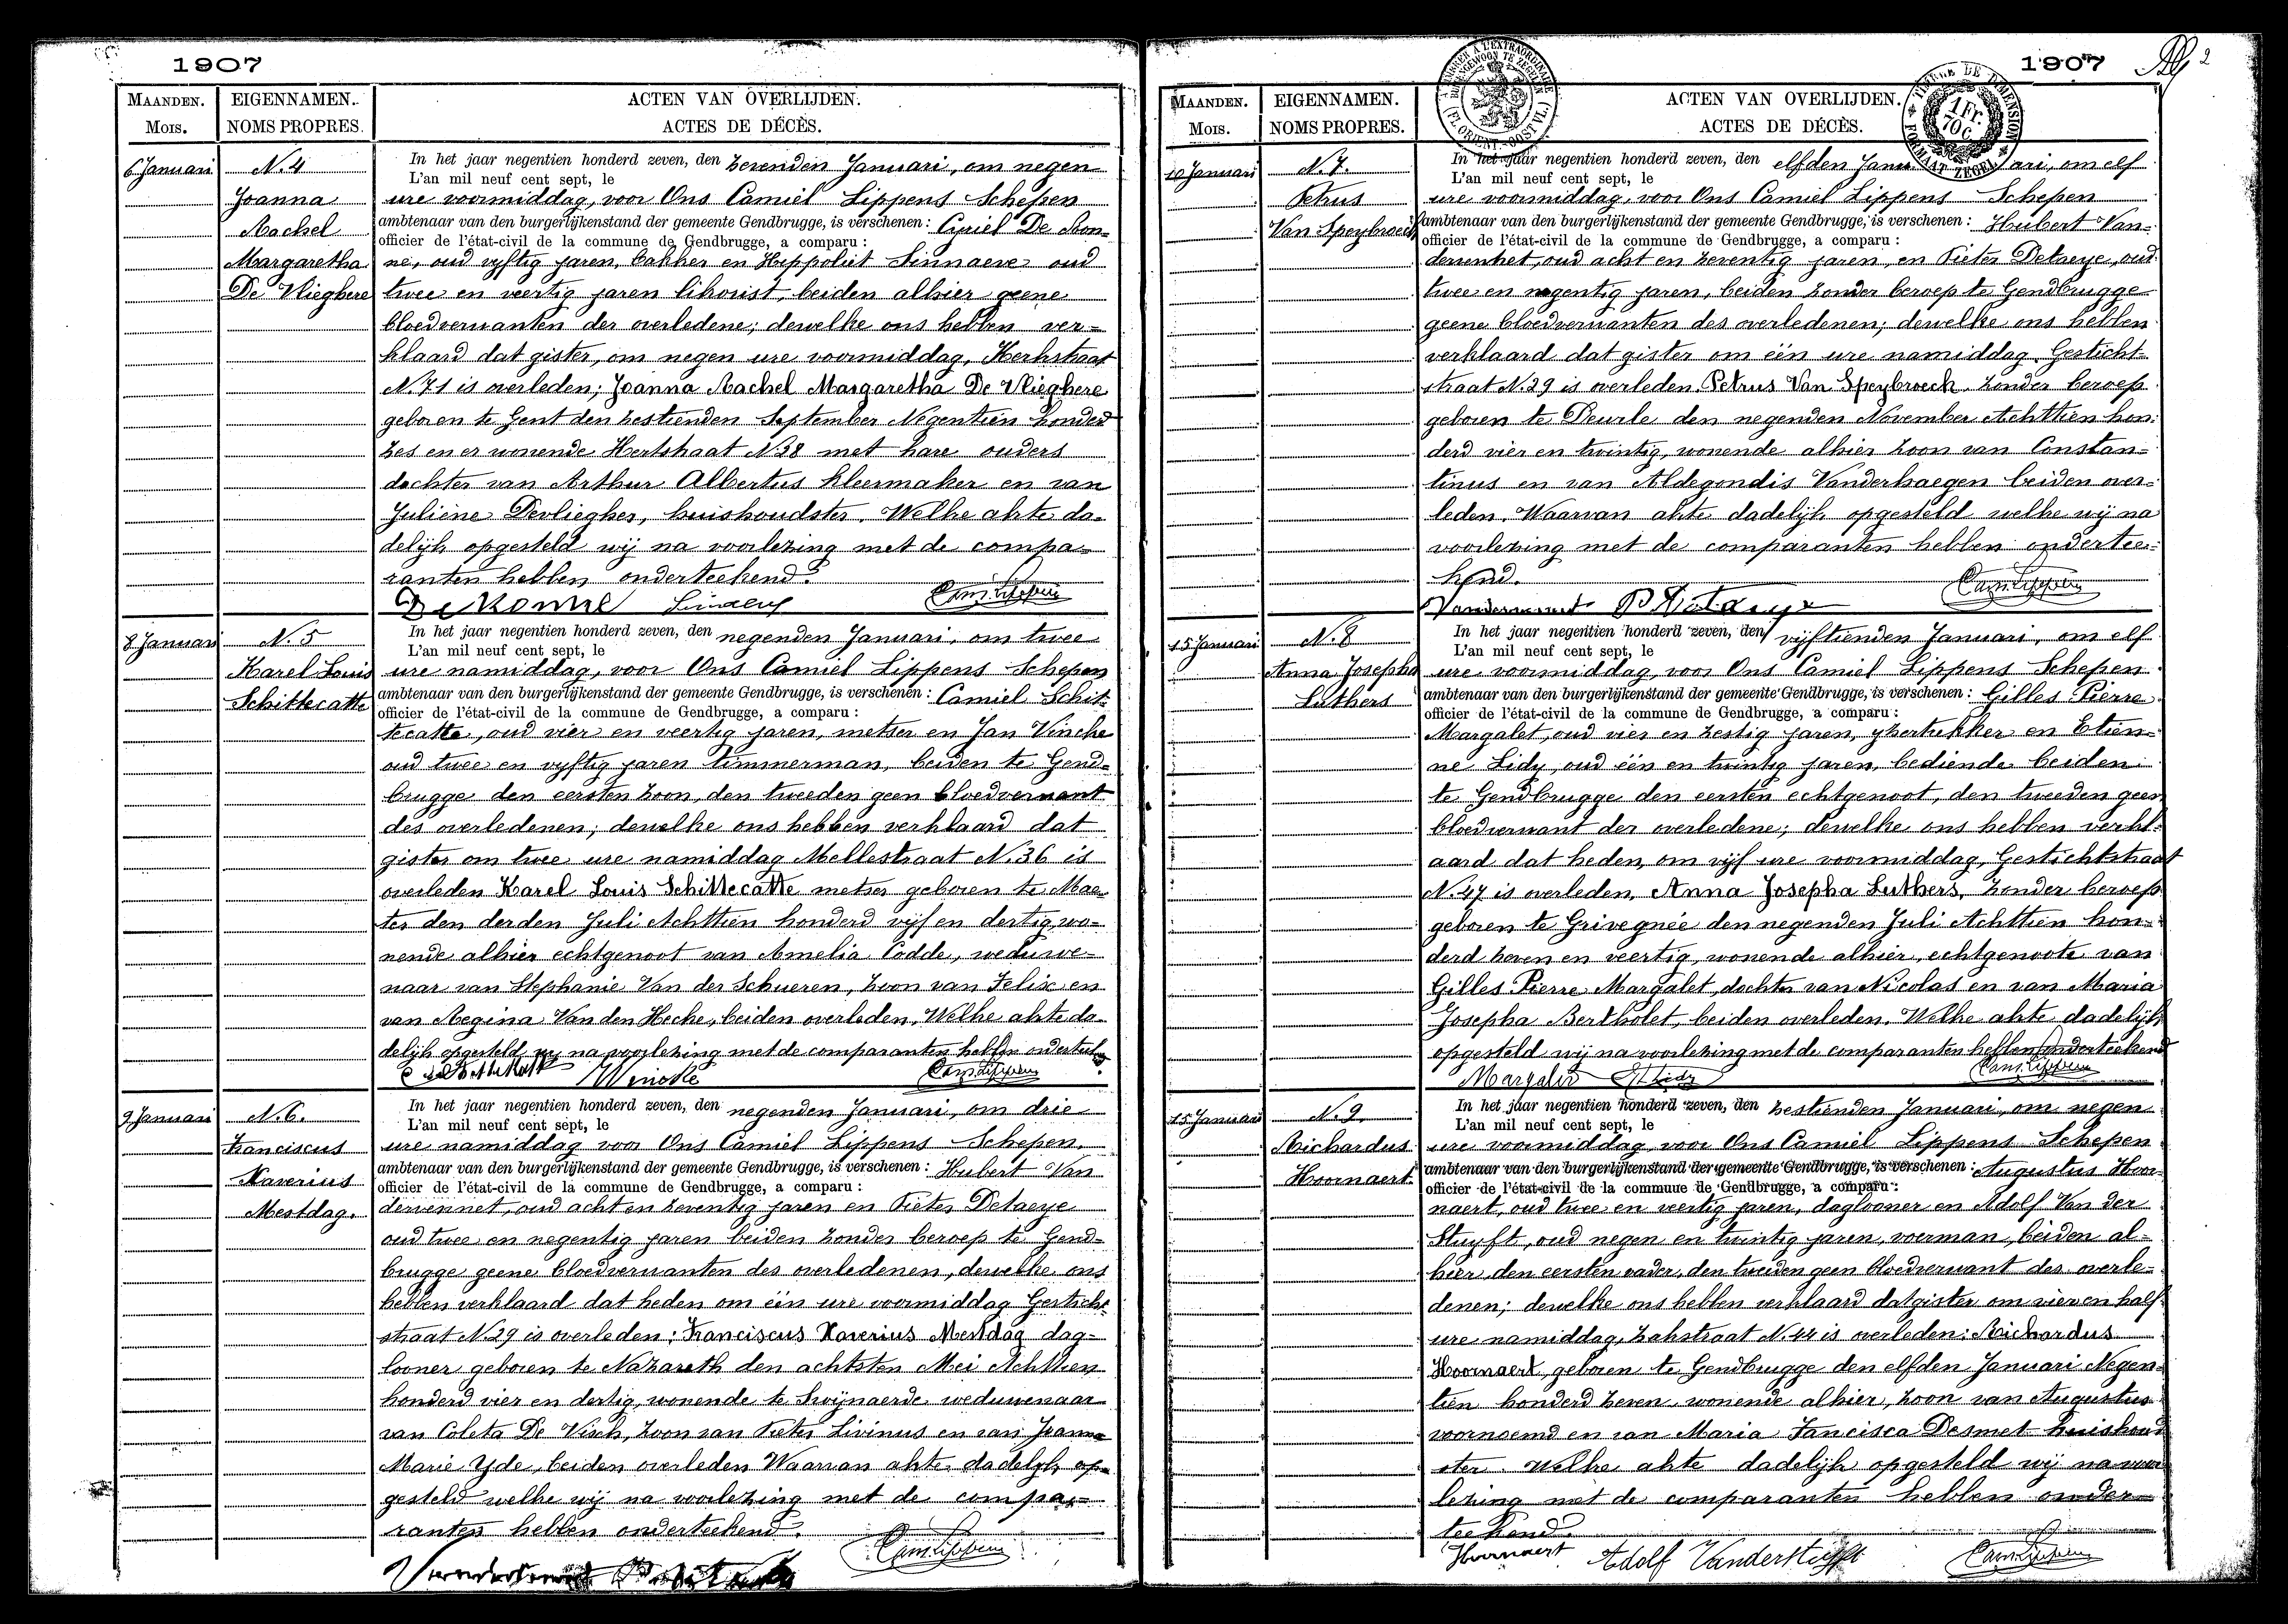 1907
MAANDEN. EIGENNAMEN. ACTEN VAN OVERLIJDEN.
MOIS. NOMS PROPRES. ACTES DE DÉCÈS.
6 Januari
N. 4
Joanna
Rachel
Margaretha
De Vlieghere
In het jaar negentien honderd zeven, den zevenden Januari, om negen
L'an mil neuf cent sept, le
ure voormiddag, voor Ons Camiel Lippens Schepen
ambtenaar van den burgerlijkenstand der gemeente Gendbrugge, is verschenen: Ciriel De Kon-
officier de l'état-civil de la commune de Gendbrugge, a comparu:
ne, oud vyftig jaren, bakker en Hippoliet Sinnaeve oud
twee en veertig jaren likorist, beiden alhier geene
bloedverwanten der overledene; dewelke ons hebben ver-
klaard dat gister, om negen ure voormiddag, Kerkstraat
N. 71 is overleden; Joanna Rachel Margaretha De Vlieghere
geboren te Gent den zestienden September Negentien honderd
zes en er wonende Hertstraat N. 38 met hare ouders
dochter van Arthur Albertus kleermaker en van
Juliene Devliegher, huishoudster. Welke akte da-
delijk opgesteld wij na voorlezing met de compa-
ranten hebben onderteekend.
Cam. Lippens
8 Januari
N. 5
Karel Louis
Schittecatte
In het jaar negentien honderd zeven, den negenden Januari, om twee
L'an mil neuf cent sept, le
ure namiddag, voor Ons Camiel Lippens Schepen
ambtenaar van den burgerlijkenstand der gemeente Gendbrugge, is verschenen: Camiel Schit-
officier de l'état-civil de la commune de Gendbrugge, a comparu:
tecatte, oud vier en veertig jaren, metser en Jan Vincke
oud twee en vyftig jaren timmerman, beiden te Gend-
brugge den eersten zoon, den tweeden geen bloedverwant
des overledenen; dewelke ons hebben verklaard dat
gister om twee ure namiddag Mellestraat N. 36 is
overleden Karel Louis Schittecatte metser geboren te Mae-
ter den derden Juli Achttien honderd vijf en dertig, wo-
nende alhier echtgenoot van Amelia Codde, weduwe-
naar van Stephanie Van der Schueren, zoon van Felix en
van Regina Van den Hecke, beiden overleden. Welke akte da-
delijk opgesteld wij na voorlezing met de comparanten hebben onderteekend
Cam. Lippens
9 Januari
N. 6.
Franciscus
Xaverius
Mestdag.
In het jaar negentien honderd zeven, den negenden Januari, om drie
L'an mil neuf cent sept, le
ure namiddag voor Ons Camiel Lippens Schepen.
ambtenaar van den burgerlijkenstand der gemeente Gendbrugge, is verschenen: Hubert Van
officier de l'état-civil de la commune de Gendbrugge, a comparu:
dervennet, oud acht en zeventig jaren en Pieter Detaeye
oud twee en negentig jaren beiden zonder beroep te Gend-
brugge geene bloedverwanten des overledenen, dewelke ons
hebben verklaard dat heden om één ure voormiddag Gesticht
straat N. 29 is overleden; Franciscus Xaverius Mestdag dag-
looner geboren te Nazareth den achtsten Mei Achttien
honderd vier en dertig, wonende te Swijnaerde weduwenaar
van Coleta De Visch, zoon van Pieter Livinus en van Joanna
Marie Yde, beiden overleden Waarvan akte dadelyk op-
gesteld welke wij na voorlezing met de compa-
ranten hebben onderteekend.
Cam. Lippens
1907
2
MAANDEN. EIGENNAMEN. ACTEN VAN OVERLIJDEN.
MOIS. NOMS PROPRES. ACTES DE DÉCÈS.
1 Fr. 70 c.
10 Januari
N. 7.
Petrus
Van Speybroeck
In het jaar negentien honderd zeven, den elfden Januari, om elf
L'an mil neuf cent sept, le
ure voormiddag, voor Ons Camiel Lippens Schepen
ambtenaar van den burgerlijkenstand der gemeente Gendbrugge, is verschenen: Hubert Van-
officier de l'état-civil de la commune de Gendbrugge, a comparu:
dervennet, oud acht en zeventig jaren, en Pieter Detaeye, oud
twee en negentig jaren, beiden zonder beroep te Gendbrugge
geene bloedverwanten des overledenen; dewelke ons hebben
verklaard dat gister om één ure namiddag Gesticht-
straat N. 29 is overleden Petrus Van Speybroeck. zonder beroep
geboren te Deurle den negenden November Achttien hon-
derd vier en twintig, wonende alhier zoon van Constan-
tinus en van Aldegondis Vanderhaegen beiden over-
leden. Waarvan akte dadelijk opgesteld welke wij na
voorlezing met de comparanten hebben ondertee-
kend.
Cam. Lippens
15 Januari
N. 8
Anna Josepha
Luthers
In het jaar negentien honderd zeven, den vijftienden Januari, om elf
L'an mil neuf cent sept, le
ure voormiddag, voor Ons Camiel Lippens Schepen
ambtenaar van den burgerlijkenstand der gemeente Gendbrugge, is verschenen: Gilles Pierre
officier de l'état-civil de la commune de Gendbrugge, a comparu:
Margalet, oud vier en zestig jaren, yzertrekker en Etien-
ne Lidy, oud één en twintig jaren, bediende beiden
te Gendbrugge den eersten echtgenoot, den tweeden geen
bloedverwant der overledene; dewelke ons hebben verkl-
aard dat heden, om vijf ure voormiddag, Gestichtstraat
N. 47 is overleden, Anna Josepha Luthers, zonder beroep
geboren te Grivegnée den negenden Juli Achttien hon-
derd zeven en veertig, wonende alhier, echtgenoote van
Gilles Pierre Margalet, dochter van Nicolas en van Maria
Josepha Bertholet, beiden overleden. Welke akte dadelijk
opgesteld wij na voorlezing met de comparanten hebben onderteekend
Cam. Lippens
15 Januari
N. 9
Richardus
Hoornaert.
In het jaar negentien honderd zeven, den zestienden Januari, om negen
L'an mil neuf cent sept, le
ure voormiddag, voor Ons Camiel Lippens Schepen
ambtenaar van den burgerlijkenstand der gemeente Gendbrugge, is verschenen: Augustus Hoor-
officier de l'état-civil de la commune de Gendbrugge, a comparu:
naert, oud twee en veertig jaren, daglooner en Adolf Van der
Stuyft, oud negen en twintig jaren, voerman, beiden al-
hier, den eersten vader, den tweeden geen bloedverwant des overle-
denen; dewelke ons hebben verklaard dat gister om vier en half
ure namiddag, Zakstraat N. 44 is overleden: Richardus
Hoornaert, geboren te Gendbrugge den elfden Januari Negen-
tien honderd zeven wonende alhier, zoon van Augustus
voornoemd en van Maria Fancisca Desmet huishoud
ster. Welke akte dadelijk opgesteld wij na voor
lezing met de comparanten hebben onder-
teekend.
Hoornaert Adolf Vanderstuyft Cam. Lippens